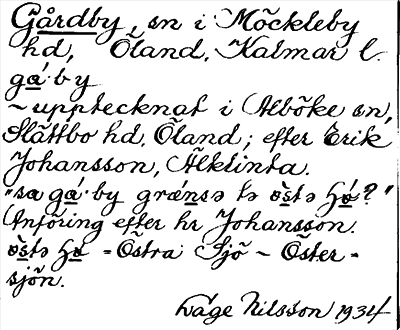 Gårdby, sn i Möckleby
hd, Öland, Kalmar l.
ga·by
~ upptecknat i Alböke sn,
Slättbo hd, Öland; efter Erik
Johansson, Älklinta.
"sa ga·by grǽnsə tə østə ʃø?"
Anföring efter hr Johansson.
østə ʃø = Östra Sjö ~ Öster-
sjön.
Låge Nilsson 1934